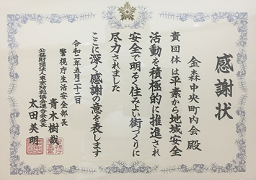 感謝状
金森中央町内会 殿
貴団体は平素から地域安全
活動を積極的に推進され
安全で明るく住みよい街づくりに
尽力されました
ここに深く感謝の意を表します
令和二年五月二十二日
警視庁生活安全部長
青木樹哉
公益財団法人東京防犯協会連合会会長
太田英明